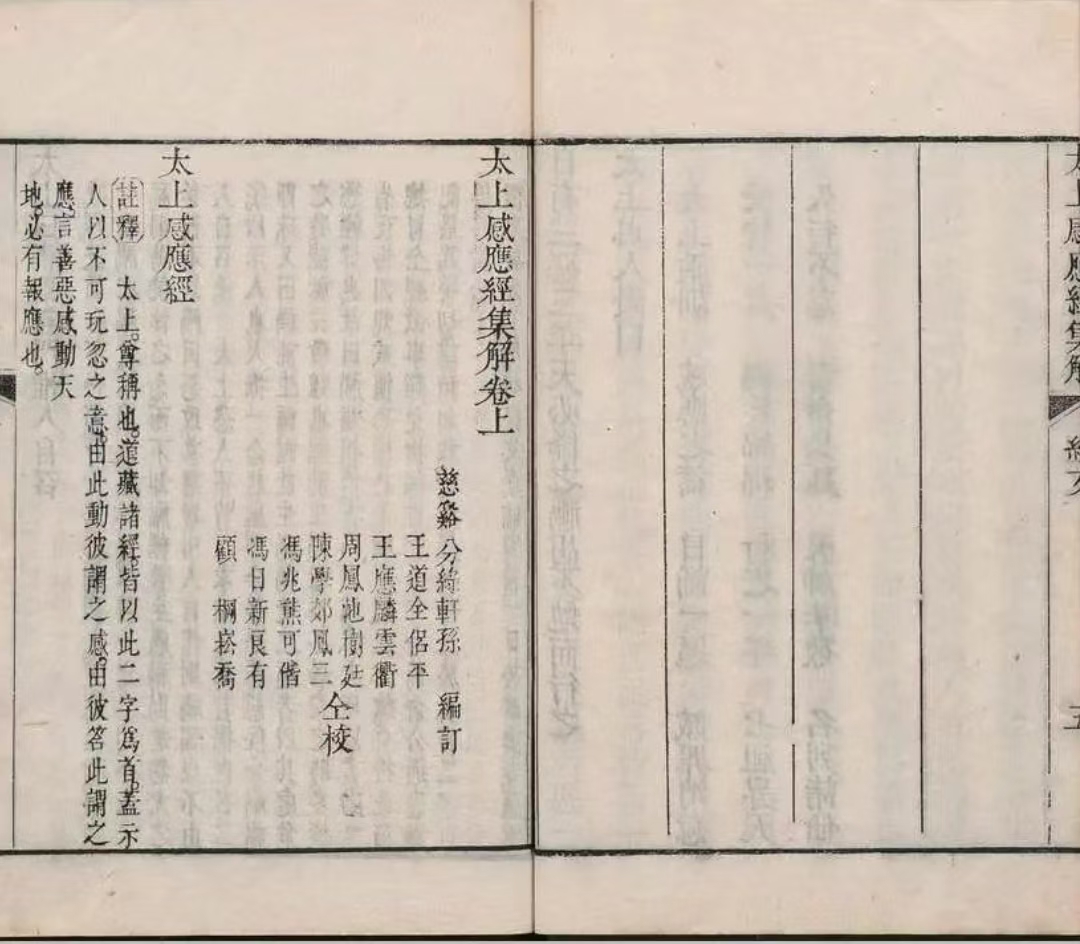 太上感應經集解
五
太上感應經集解卷上
慈谿分綠軒孫　編訂
王道全侶平
王應麟雲衢
周鳳池樹廷
陳學郊鳳三
仝校
馮兆熊可偕
馮日新艮有
顧棡崧喬
太上感應經
註釋　太上。尊稱也。道藏諸經。皆以此二字爲首。蓋示
人以不可玩忽之意。由此動彼謂之感。由彼答此謂之
應。言善惡感動天
地。必有報應也。